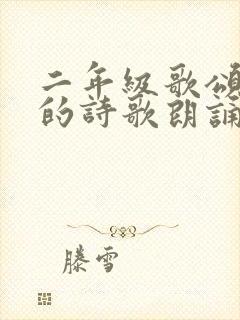 二年級歌頌
的詩歌朗誦
滕雪